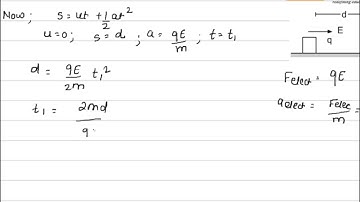 Now ; S = ut + 1/2 at²
u = 0 ; s = d ; a = qE/m ; t = t₁
d = qE/2m t₁²
t₁ = 2md/q
d
E
q
F_elect = qE
a_elect = F_elec/m =